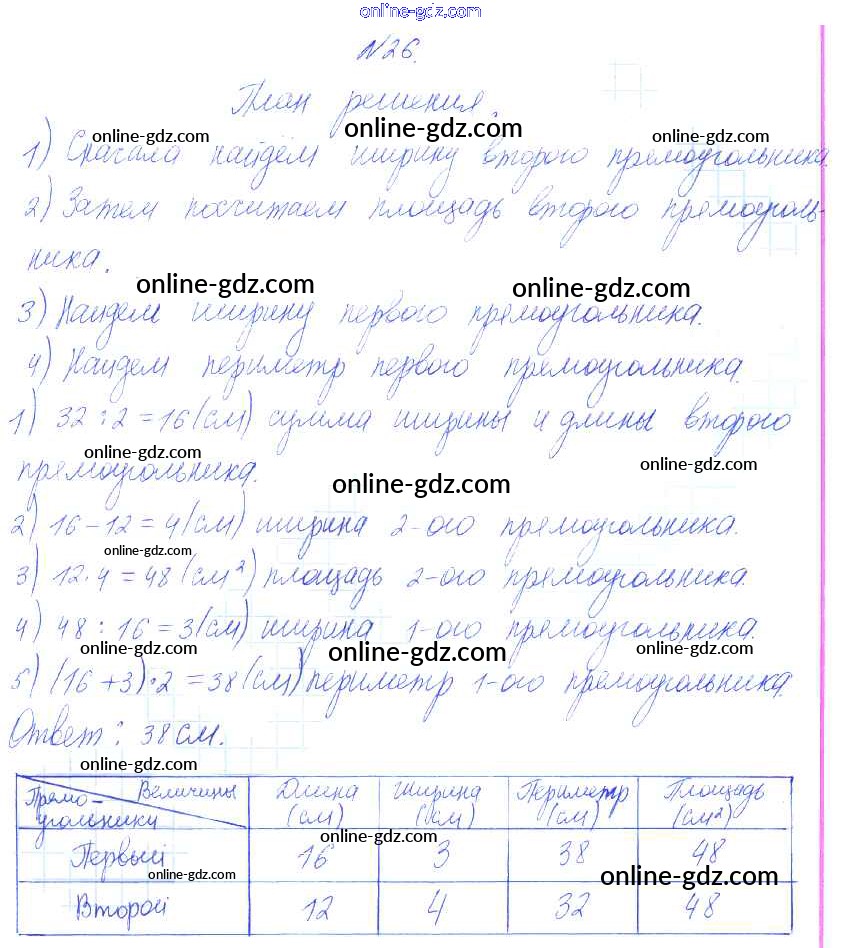 online-gdz.com
№26.
План решения.
online-gdz.com online-gdz.com online-gdz.com
1) Сначала найдём ширину второго прямоугольника.
2) Затем посчитаем площадь второго прямоуголь-
ника.
online-gdz.com online-gdz.com
3) Найдем ширину первого прямоугольника.
4) Найдем периметр первого прямоугольника.
1) 32 : 2 = 16 (см) сумма ширины и длины второго
прямоугольника.
online-gdz.com online-gdz.com online-gdz.com
2) 16 - 12 = 4 (см) ширина 2-ого прямоугольника.
online-gdz.com
3) 12 · 4 = 48 (см²) площадь 2-ого прямоугольника.
4) 48 : 16 = 3 (см) ширина 1-ого прямоугольника.
online-gdz.com online-gdz.com online-gdz.com
5) (16 + 3) · 2 = 38 (см) периметр 1-ого прямоугольника.
Ответ: 38 см.
online-gdz.com
Прямо-угольники Величины Длина (см) Ширина (см) Периметр (см) Площадь (см²)
online-gdz.com
Первый 16 3 38 48
online-gdz.com online-gdz.com
Второй 12 4 32 48